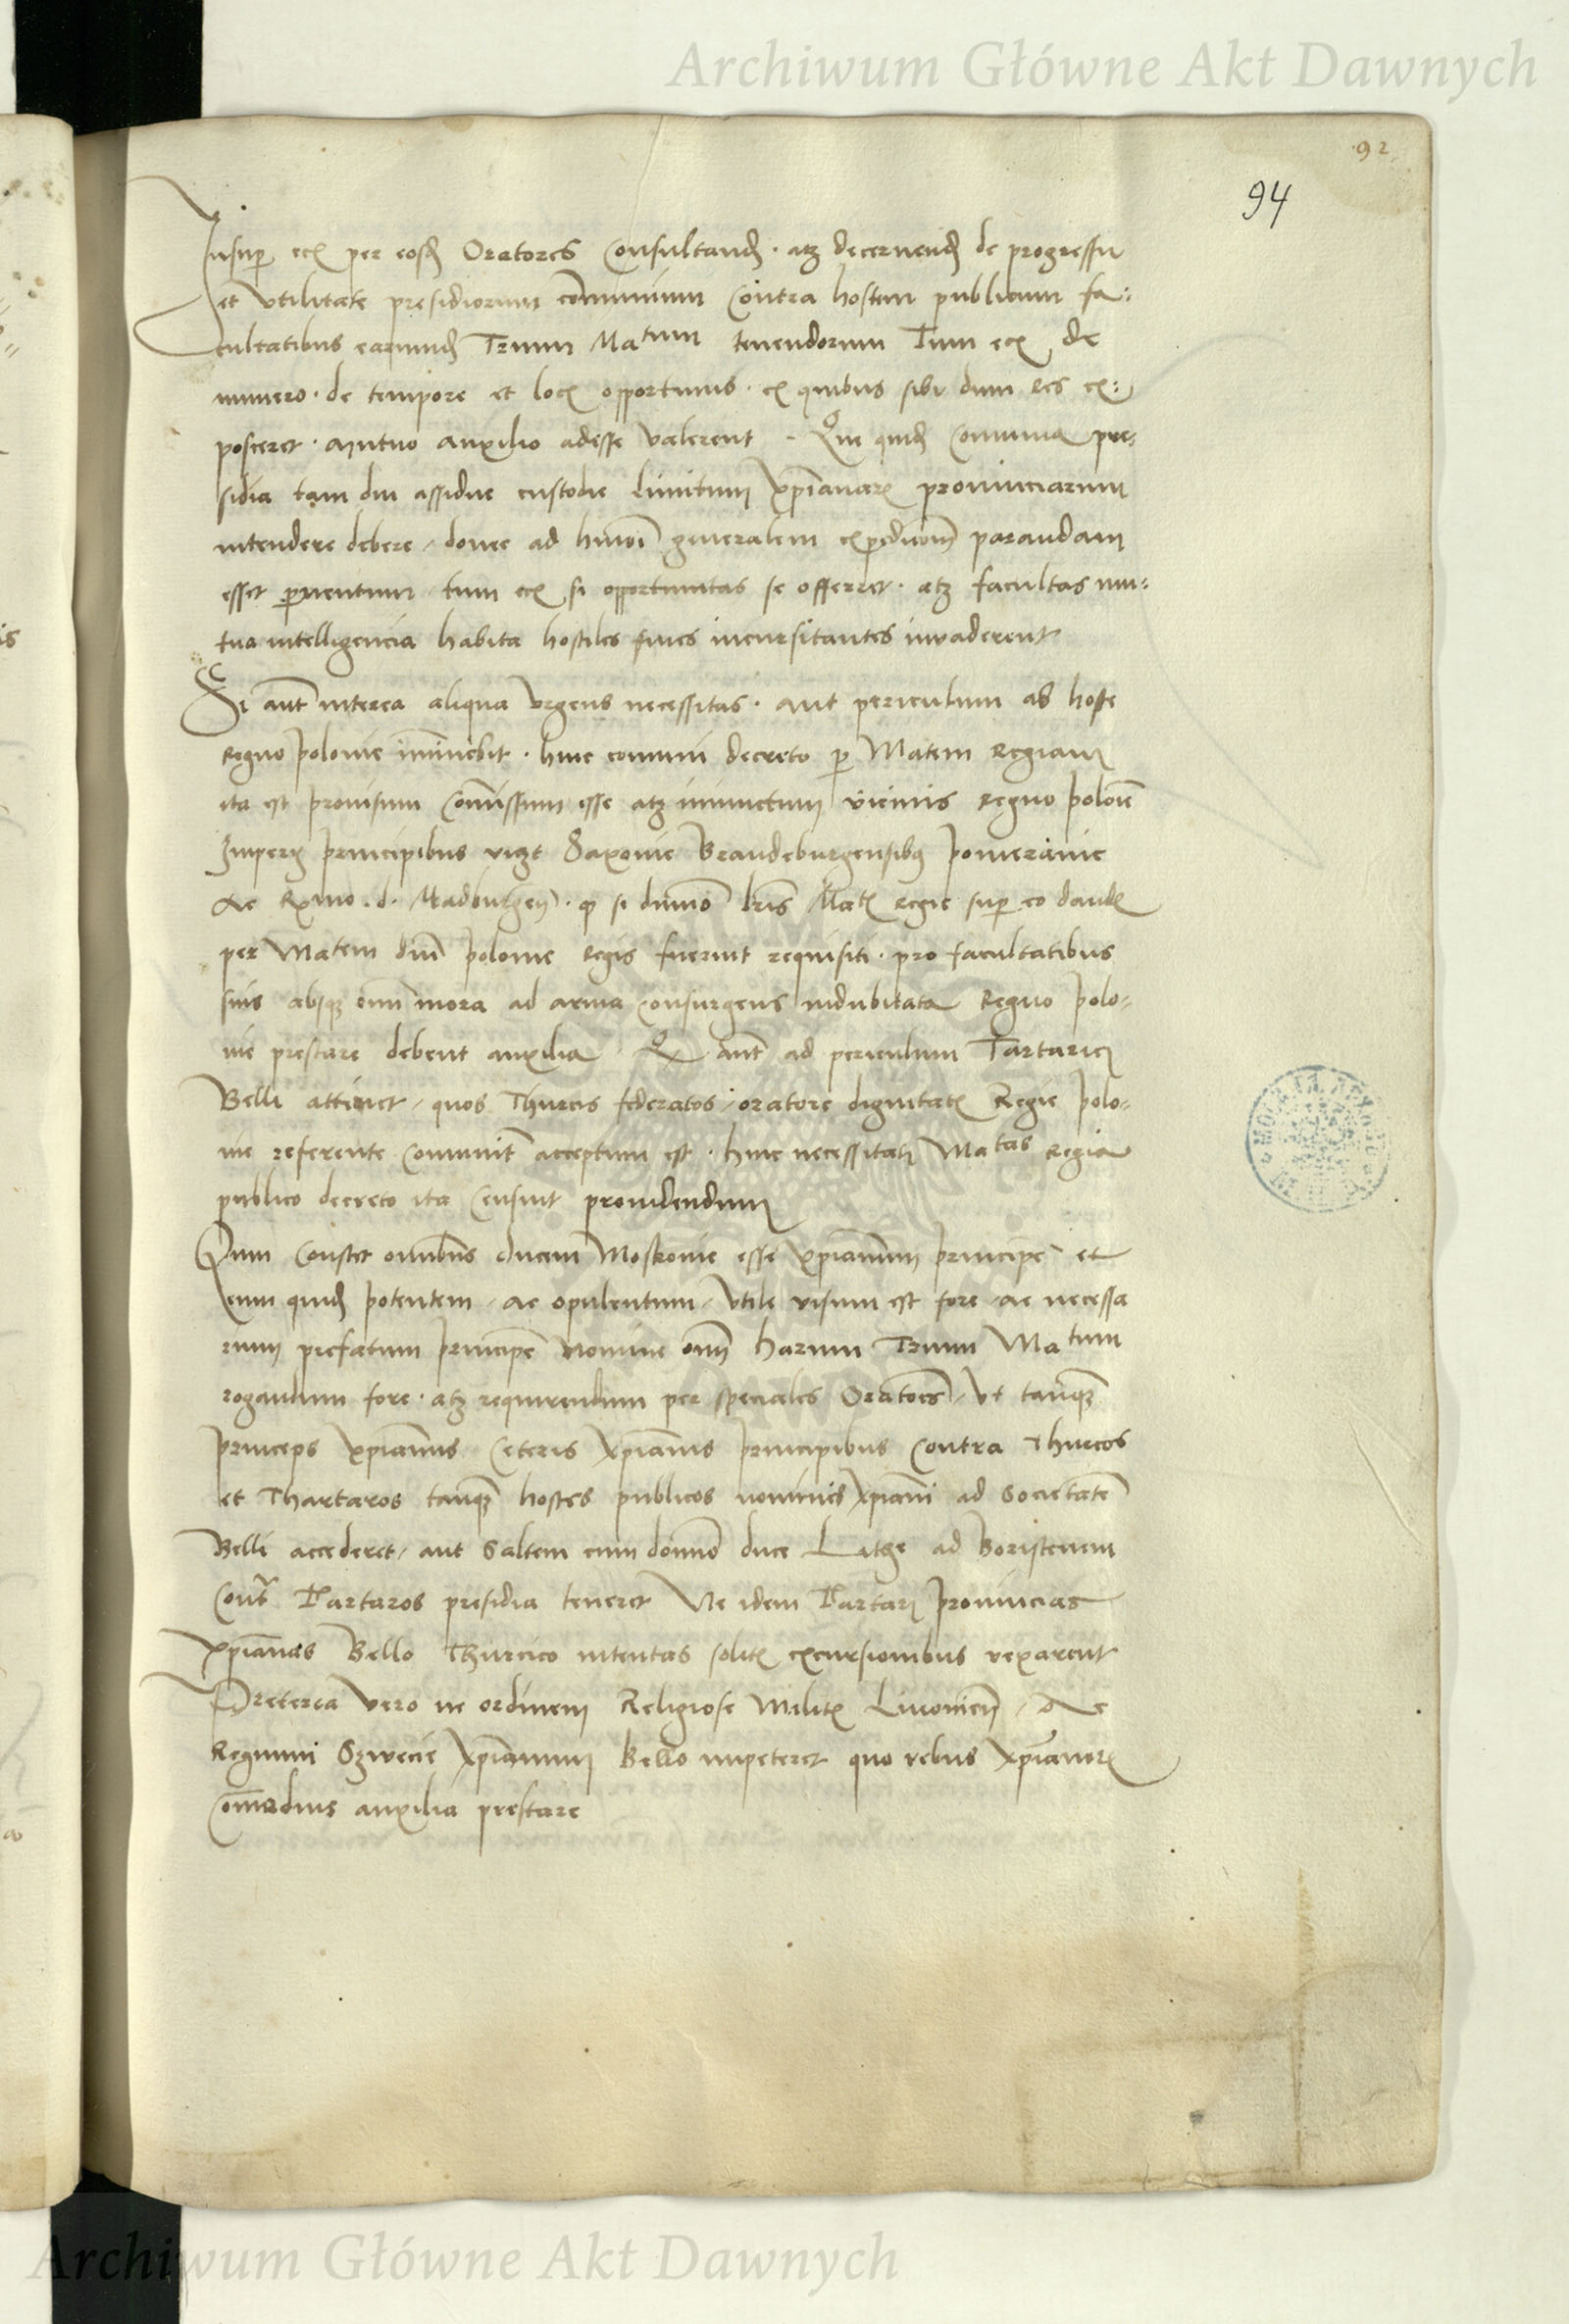 Archiwum Główne Akt Dawnych
92
94
Insup eciam per eosd Oratores Consultand · atqz decernend de progressu
et vtilitate presidiorum com̄unium Contra hostem publicum fa:
cultatibus earumd Trium Matum tenendorum Tum eciam de
numero · de tempore et locis opportunis · ex quibus sibi dum Res ex:
posceret · mutuo auxilio adesse valerent · Que quid Comunia pre:
sidia tam diu assidue custodie limitum xpianar prouinciarum
intendere debere / donec ad hmoi generalem expedicionem parandam
esset peruentum / tum eciam si opportunitas se offerret · atqz facultas mu:
tua intelligencia habita hostiles fines incursitantes inuaderent
Si aut interea aliqua vrgens necessitas · aut periculum ab hoste
Regno polonie im̄inebit · huic comuni decreto p Matem Regiam
ita est prouisum Com̄issum esse atqz iniunctum vicinis Regno polonie
Imperij principibus vizt Saxonie Brandeburgensibus pomeranie
Ac Rmo · d · Madburgen · qz si dum̄o lris Matis Regie sup eo dandis
per Matem dni polonie Regis fuerint requisiti · pro facultatibus
suis absqz omni mora ad arma consurgens indubitata Regno polo-
nie prestare debent auxilia · Q aut ad periculum Tartarici
Belli attinet / quos Thurcis federatos / oratore dignitatis Regie polo-
nie referente Comunit acceptum est · huic necessitati Matas Regia
publico decreto ita Censuit prouidendum
Cum Constet omnibus ducem Moskouie esse xpianum principe et
eum quid potentem / ac opulentum / vtile visum est fore / ac necessa
rium prefatum principe nomine omni harum Trium Matum
rogandum fore · atqz requirendum per speciales Oratores / vt tanqz
princeps xpianus Ceteris xpianis principibus Contra Thurcos
et Thartaros tanqz hostes publicos nominis xpiani ad Societate
Belli accederet / aut Saltem cum domino duce Litge ad Boristenem
Contra Tartaros presidia teneret Ne idem Tartari prouincias
xpianas Bello Thurcico intentas solitis excursionibus vexarent
Preterea vero ne ordinem Religiose Militie Liuonien / Ac
Regnum Szwecie xpianum Bello impeteret quo rebus xpianor
Com̄odius auxilia prestare
Archiwum Główne Akt Dawnych